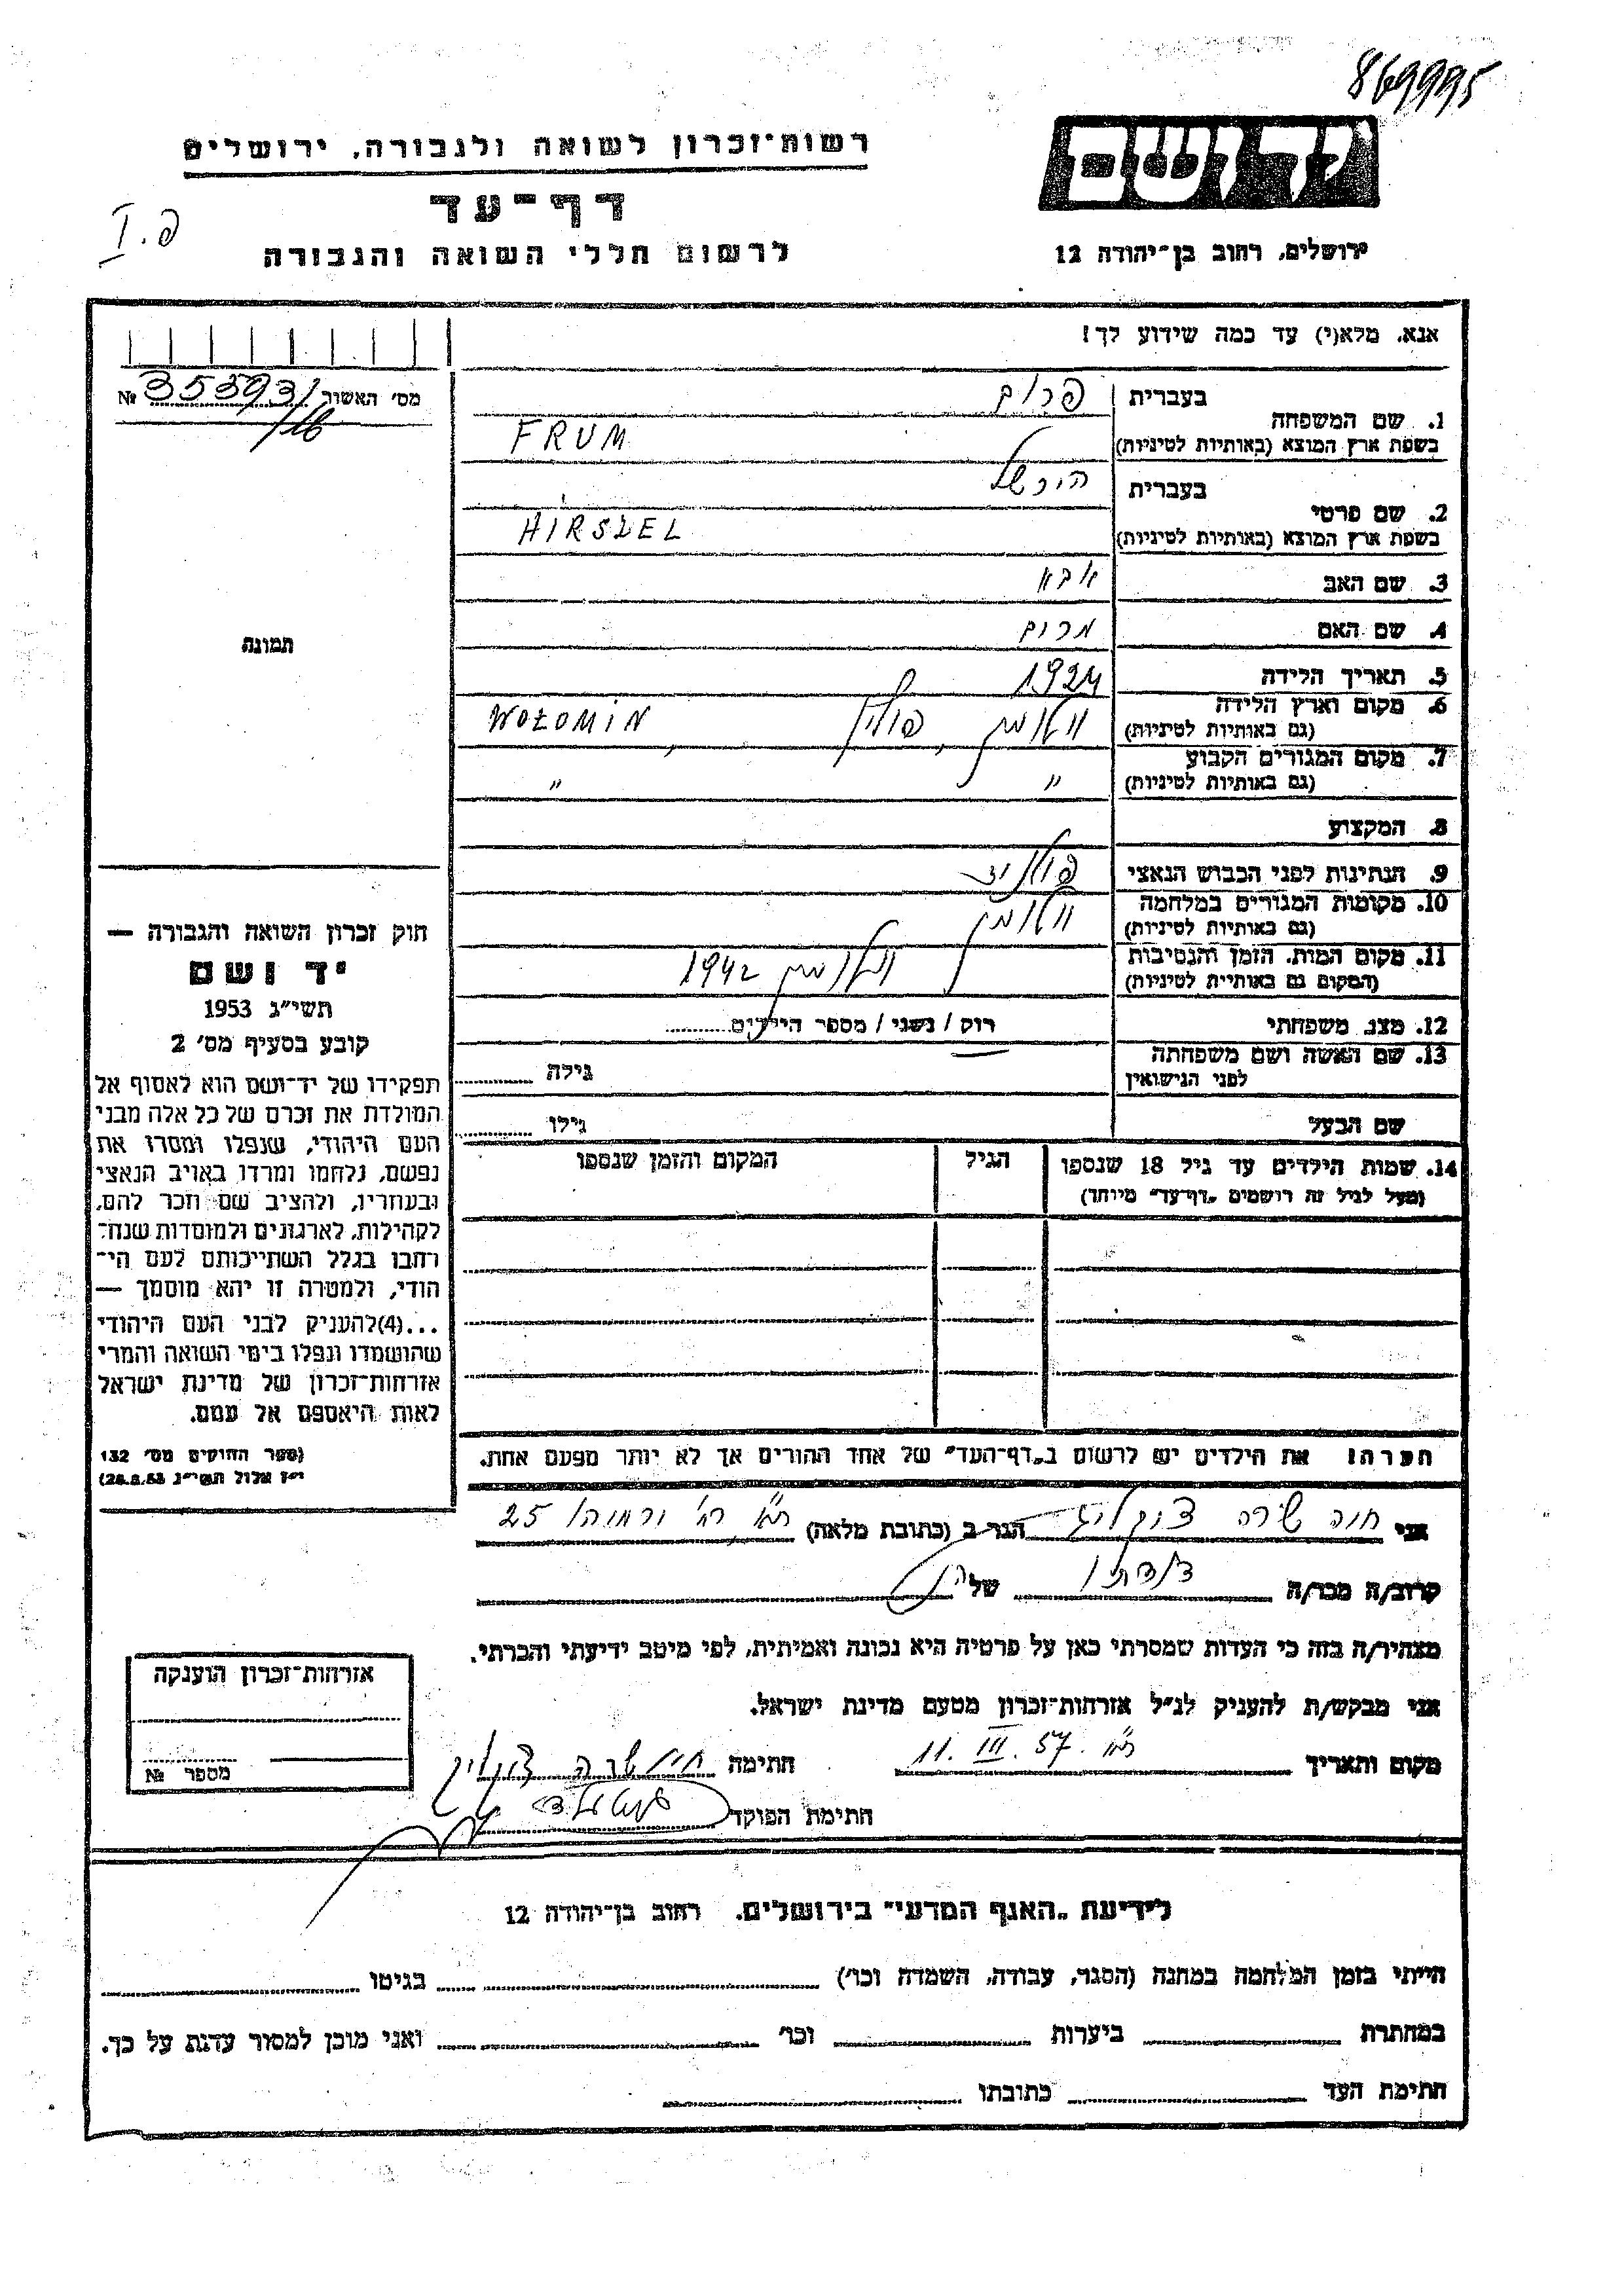 869995
יד ושם
ירושלים, רחוב בן־יהודה 12
רשות־זכרון לשואה ולגבורה, ירושלים
דף־עד
לרשום חללי השואה והגבורה
פ.I
אנא, מלא(י) עד כמה שידוע לך!
מס׳ האשור № 355931/16
1. שם המשפחה
בעברית פרום
בשפת ארץ המוצא (באותיות לטיניות) FRUM
2. שם פרטי
בעברית הירשל
בשפת ארץ המוצא (באותיות לטיניות) HIRSZEL
3. שם האב אבא
4. שם האם מרים
5. תאריך הלידה 1924
6. מקום וארץ הלידה וולומין, פולין, WOŁOMIN
(גם באותיות לטיניות)
7. מקום המגורים הקבוע " "
(גם באותיות לטיניות)
8. המקצוע
9. הנתינות לפני הכבוש הנאצי פולנית
10. מקומות המגורים במלחמה וולומין
(גם באותיות לטיניות)
11. מקום המות, הזמן והנסיבות וולומין 1942
(המקום גם באותיות לטיניות)
12. מצב משפחתי רוק / נשוי / מספר הילדים
13. שם האשה ושם משפחתה
לפני הנישואין גילה
שם הבעל גילו
14. שמות הילדים עד גיל 18 שנספו הגיל המקום והזמן שנספו
(מעל לגיל זה רושמים „דף־עד" מיוחד)
הערה! את הילדים יש לרשום ב„דף־העד" של אחד ההורים אך לא יותר מפעם אחת.
תמונה
חוק זכרון השואה והגבורה —
יד ושם
תשי״ג 1953
קובע בסעיף מס׳ 2
תפקידו של יד־ושם הוא לאסוף אל
המולדת את זכרם של כל אלה מבני
העם היהודי, שנפלו ומסרו את
נפשם, נלחמו ומרדו באויב הנאצי
ובעוזריו, ולהציב שם וזכר להם,
לקהילות, לארגונים ולמוסדות שנח־
רבו בגלל השתייכותם לעם הי־
הודי, ולמטרה זו יהא מוסמך —
...(4)להעניק לבני העם היהודי
שהושמדו ונפלו בימי השואה והמרי
אזרחות־זכרון של מדינת ישראל
לאות היאספם אל עמם.
(ספר החוקים מס׳ 132
י״ז אלול תשי״ג 28.8.53)
אני חוה שרה הגר ב (כתובת מלאה) ת״א, רח׳ 25
קרוב/ה מכר/ה דודתו של
מצהיר/ה בזה כי העדות שמסרתי כאן על פרטיה היא נכונה ואמיתית, לפי מיטב ידיעתי והכרתי.
אני מבקש/ת להעניק לנ״ל אזרחות־זכרון מטעם מדינת ישראל.
מקום ותאריך ת״א. 11.III.57 חתימה
חתימת הפוקד
אזרחות־זכרון הוענקה
מספר №
לידיעת „האגף המדעי" בירושלים, רחוב בן־יהודה 12
הייתי בזמן המלחמה במחנה (הסגר, עבודה, השמדה וכו׳) בגיטו
במחתרת ביערות וכו׳ ואני מוכן למסור עדות על כך.
חתימת העד כתובתו